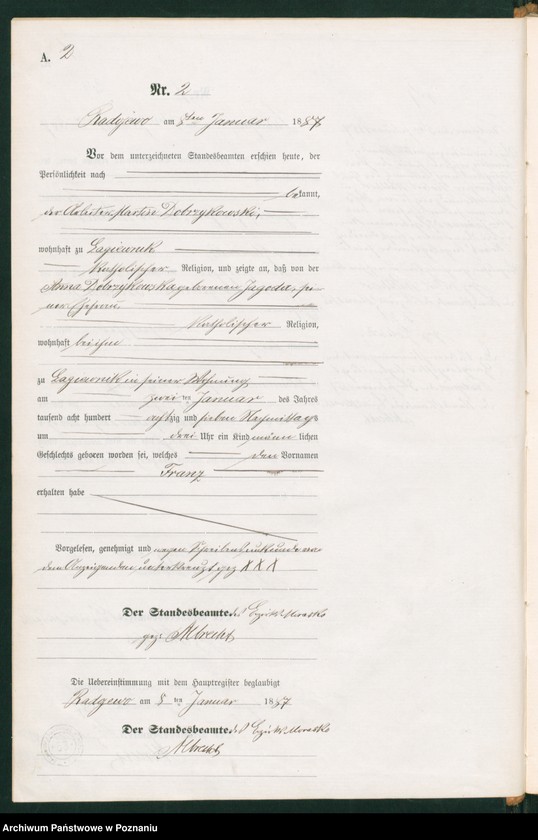 A. 2
Nr. 2
Radojewo am 5ten Januar 1887
Vor dem unterzeichneten Standesbeamten erschien heute, der
Persönlichkeit nach
bekannt,
der Arbeiter Martin Dobrzykowski,
wohnhaft zu Lagiewnik
katholischer Religion, und zeigte an, daß von der
Anna Dobrzykowska geborenen Jagoda, sei-
ner Ehefrau
katholischer Religion,
wohnhaft bei ihm
zu Lagiewnik in seiner Wohnung
am zweiten Januar des Jahres
tausend acht hundert achtzig und sieben Nachmittags
um drei Uhr ein Kind männlichen
Geschlechts geboren worden sei, welches den Vornamen
Franz
erhalten habe
Vorgelesen, genehmigt und wegen Schreibensunkunde von
dem Anzeigenden unterkreuzt gez. XXX
Der Standesbeamte des Bezirks Morasko
gez. Albrecht
Die Uebereinstimmung mit dem Hauptregister beglaubigt
Radojewo am 5ten Januar 1887
Der Standesbeamte des Bezirks Morasko
Albrecht
Archiwum Państwowe w Poznaniu